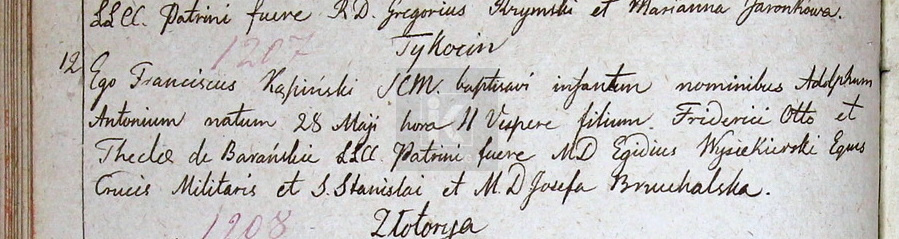 LLCC. Patrini fuere R.D. Gregorius Krymski et Marianna Jaronkowa.
1207
Tykocin
12 Ego Franciscus Kąpiński SCM. baptisavi infantem nominibus Adolphum
Antonium natum 28 Maji hora 11 Vespere filium Friderici Otto et
Theclæ de Barańskie LLCC. Patrini fuere MD Egidius Wysiekierski Eques
Crucis Militaris et S. Stanislai et M.D Josefa Bruchalska.
1208
Złotorya